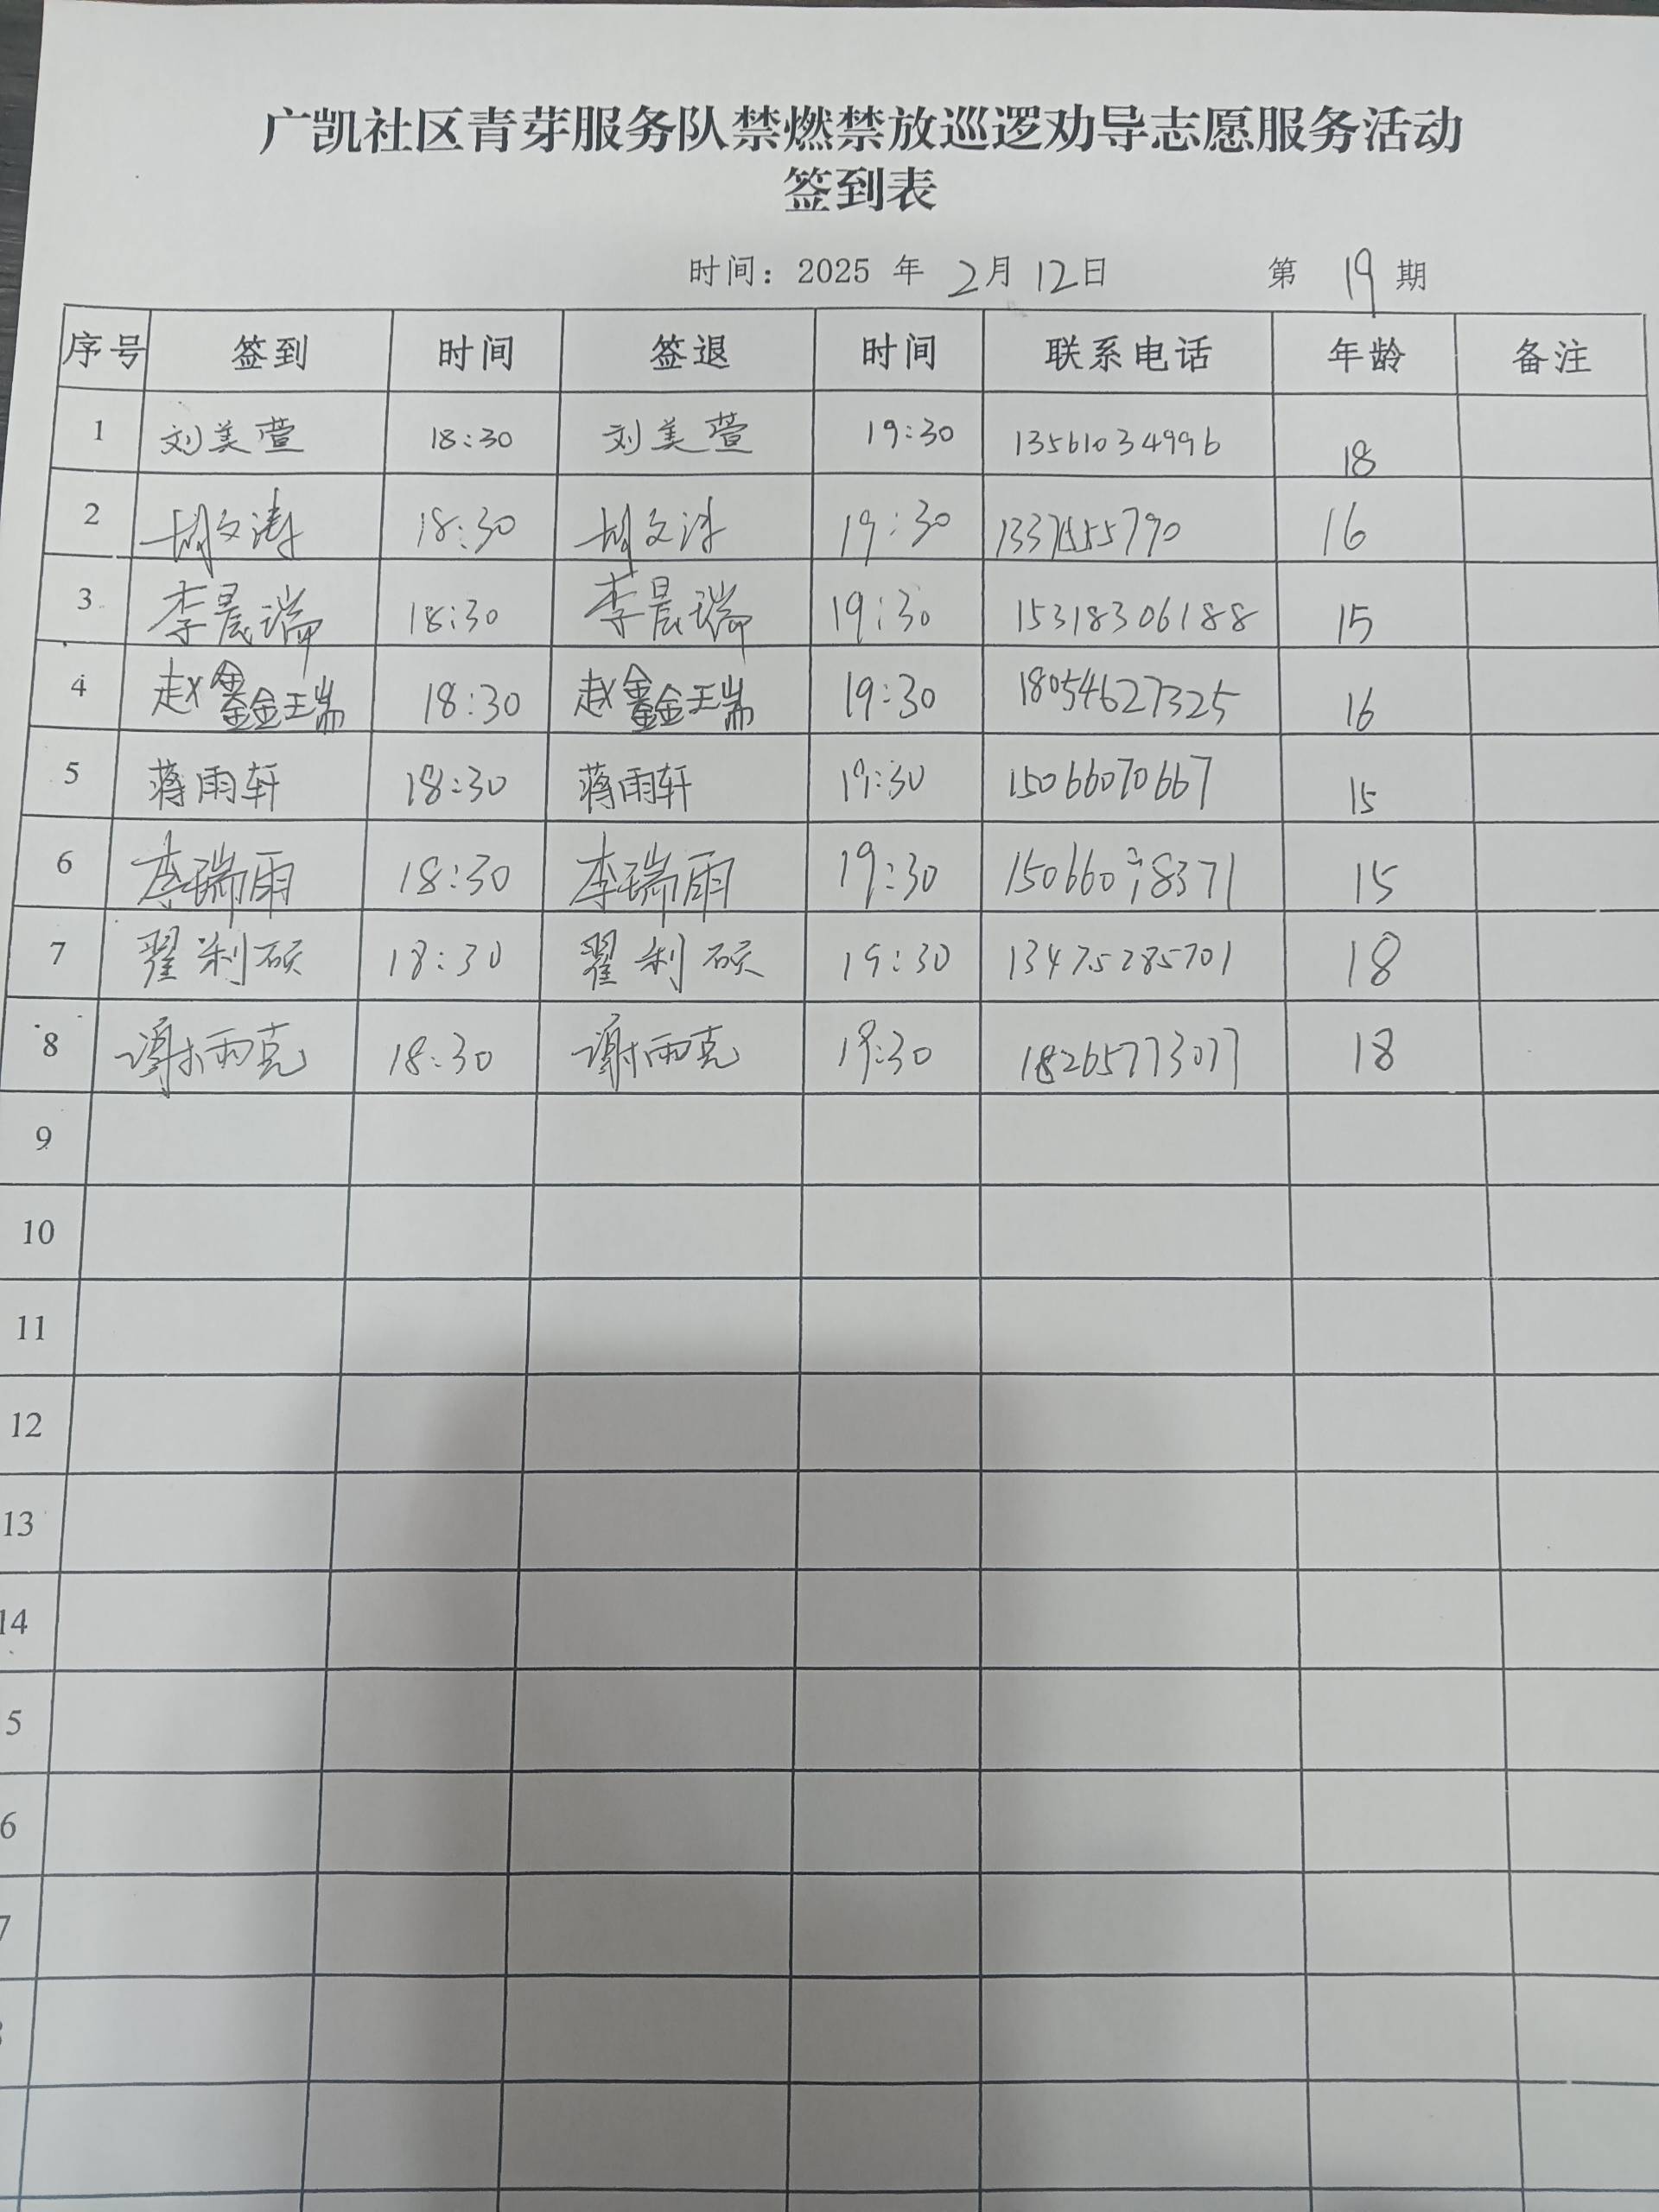 广凯社区青芽服务队禁燃禁放巡逻劝导志愿服务活动
签到表
时间：2025 年 2月 12日 第 19 期
序号 签到 时间 签退 时间 联系电话 年龄 备注
1 刘美萱 18:30 刘美萱 19:30 13561034996 18
2 胡文涛 18:30 胡文涛 19:30 16
3 李晨瑞 18:30 李晨瑞 19:30 15318306188 15
4 赵鑫瑞 18:30 赵鑫瑞 19:30 18054627325 16
5 蒋雨轩 18:30 蒋雨轩 19:30 15066070667 15
6 李瑞雨 18:30 李瑞雨 19:30 15
7 翟利硕 18:30 翟利硕 19:30 13475285701 18
8 谢雨克 18:30 谢雨克 19:30 18265773077 18
9
10
11
12
13
14
5
6
7